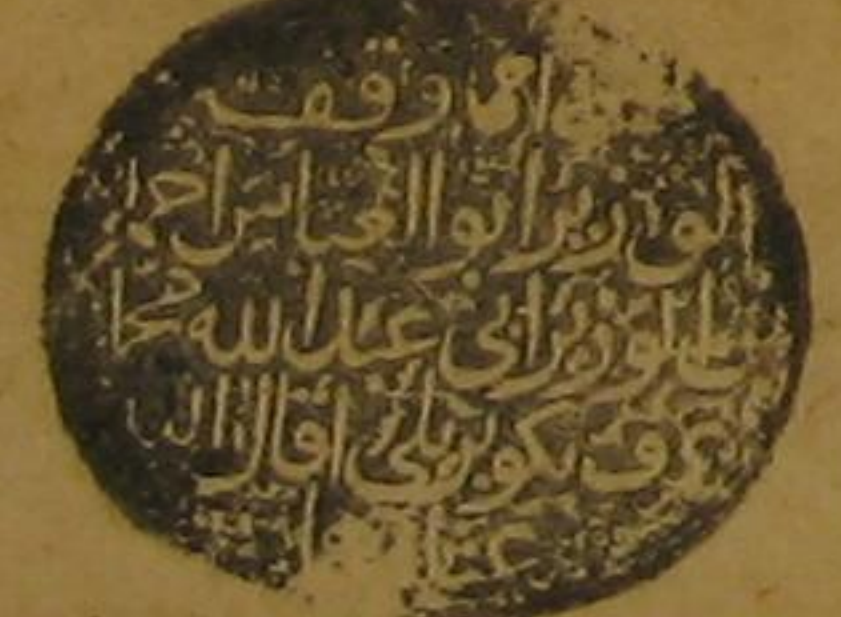 وقفه
الوزير ابو العباس احمد
بن الوزير ابي عبد الله محمد
عرف بكوبريلي اقال الله